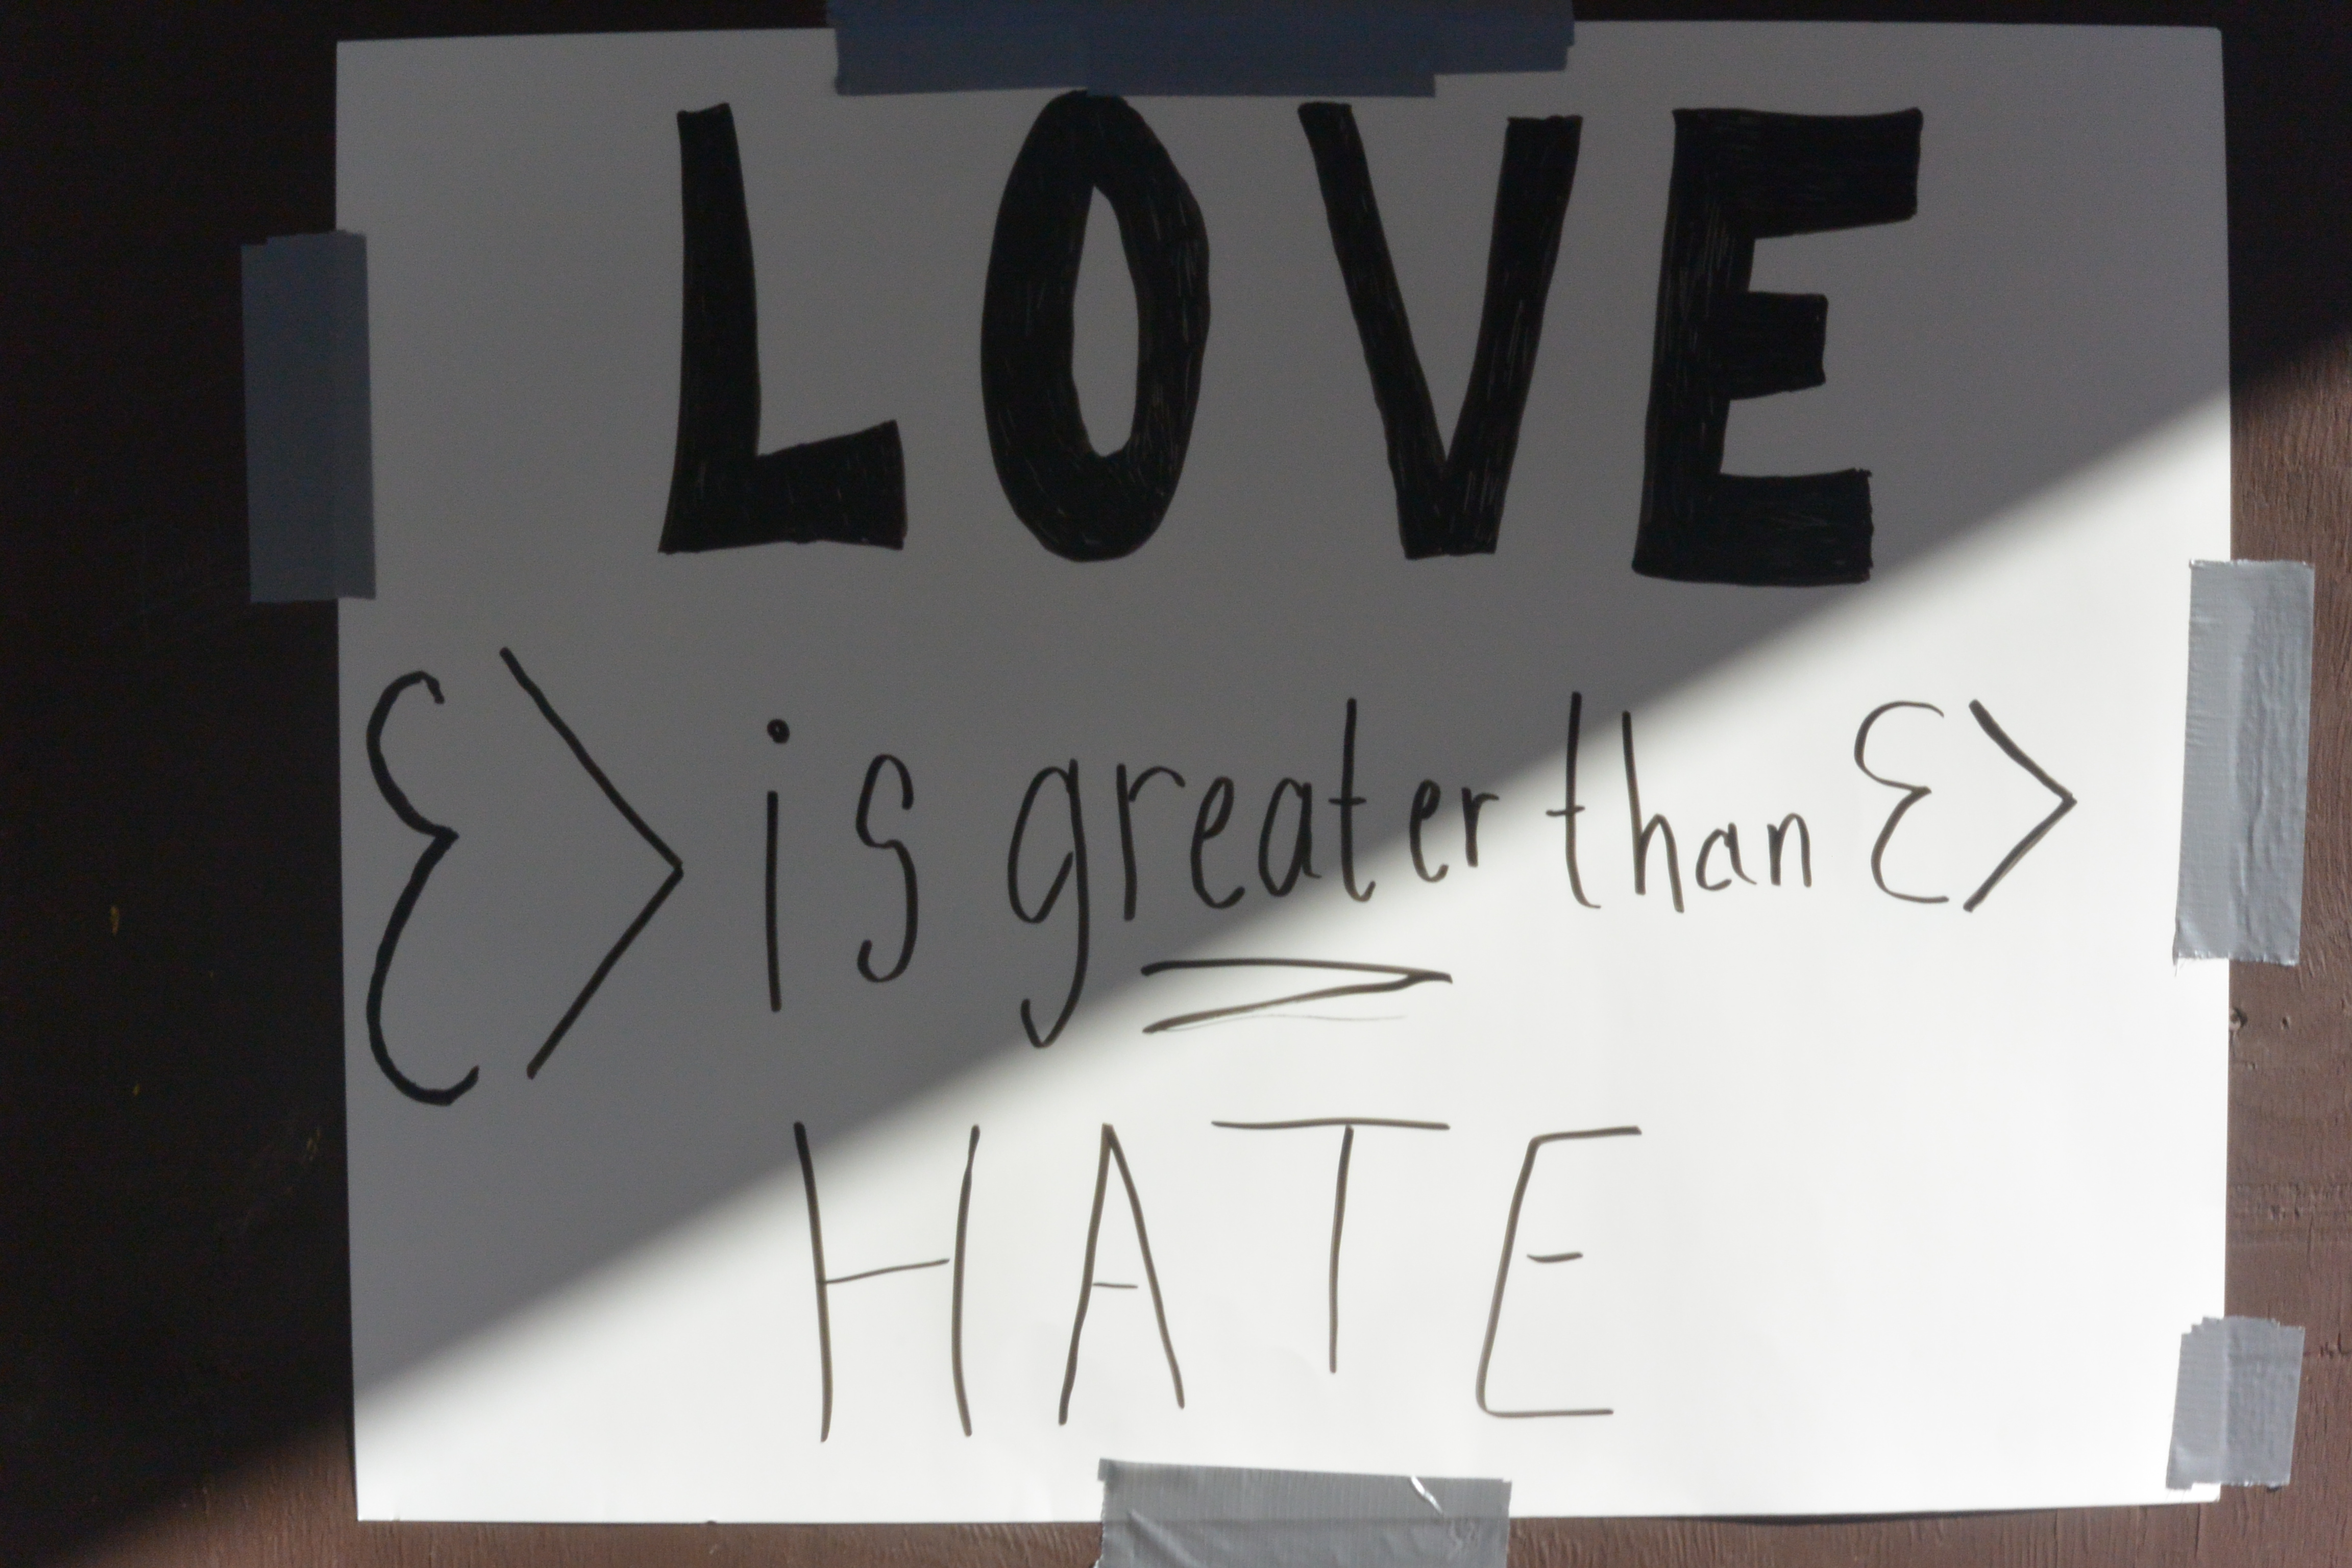 LOVE
ε> is greater than ε>
>
HATE